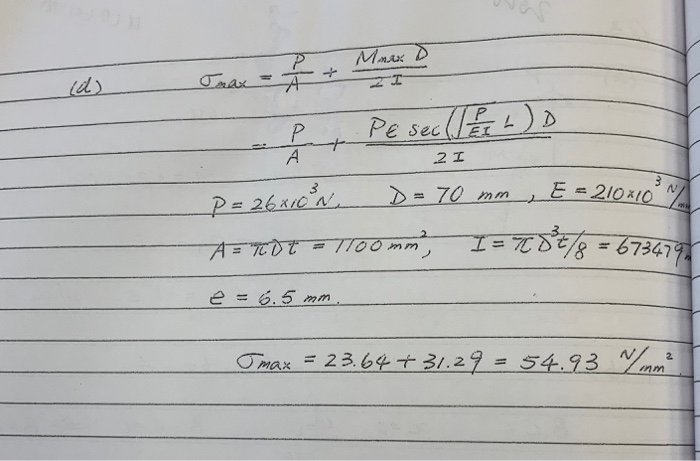 (d) σmax = P/A + Mmax D/2I
= P/A + Pe sec(√(P/EI) L) D/2I
P = 26×10³ N, D = 70 mm, E = 210×10³ N/
A = πDt = 1100 mm², I = πD³t/8 = 673479
e = 6.5 mm.
σmax = 23.64 + 31.29 = 54.93 N/mm²